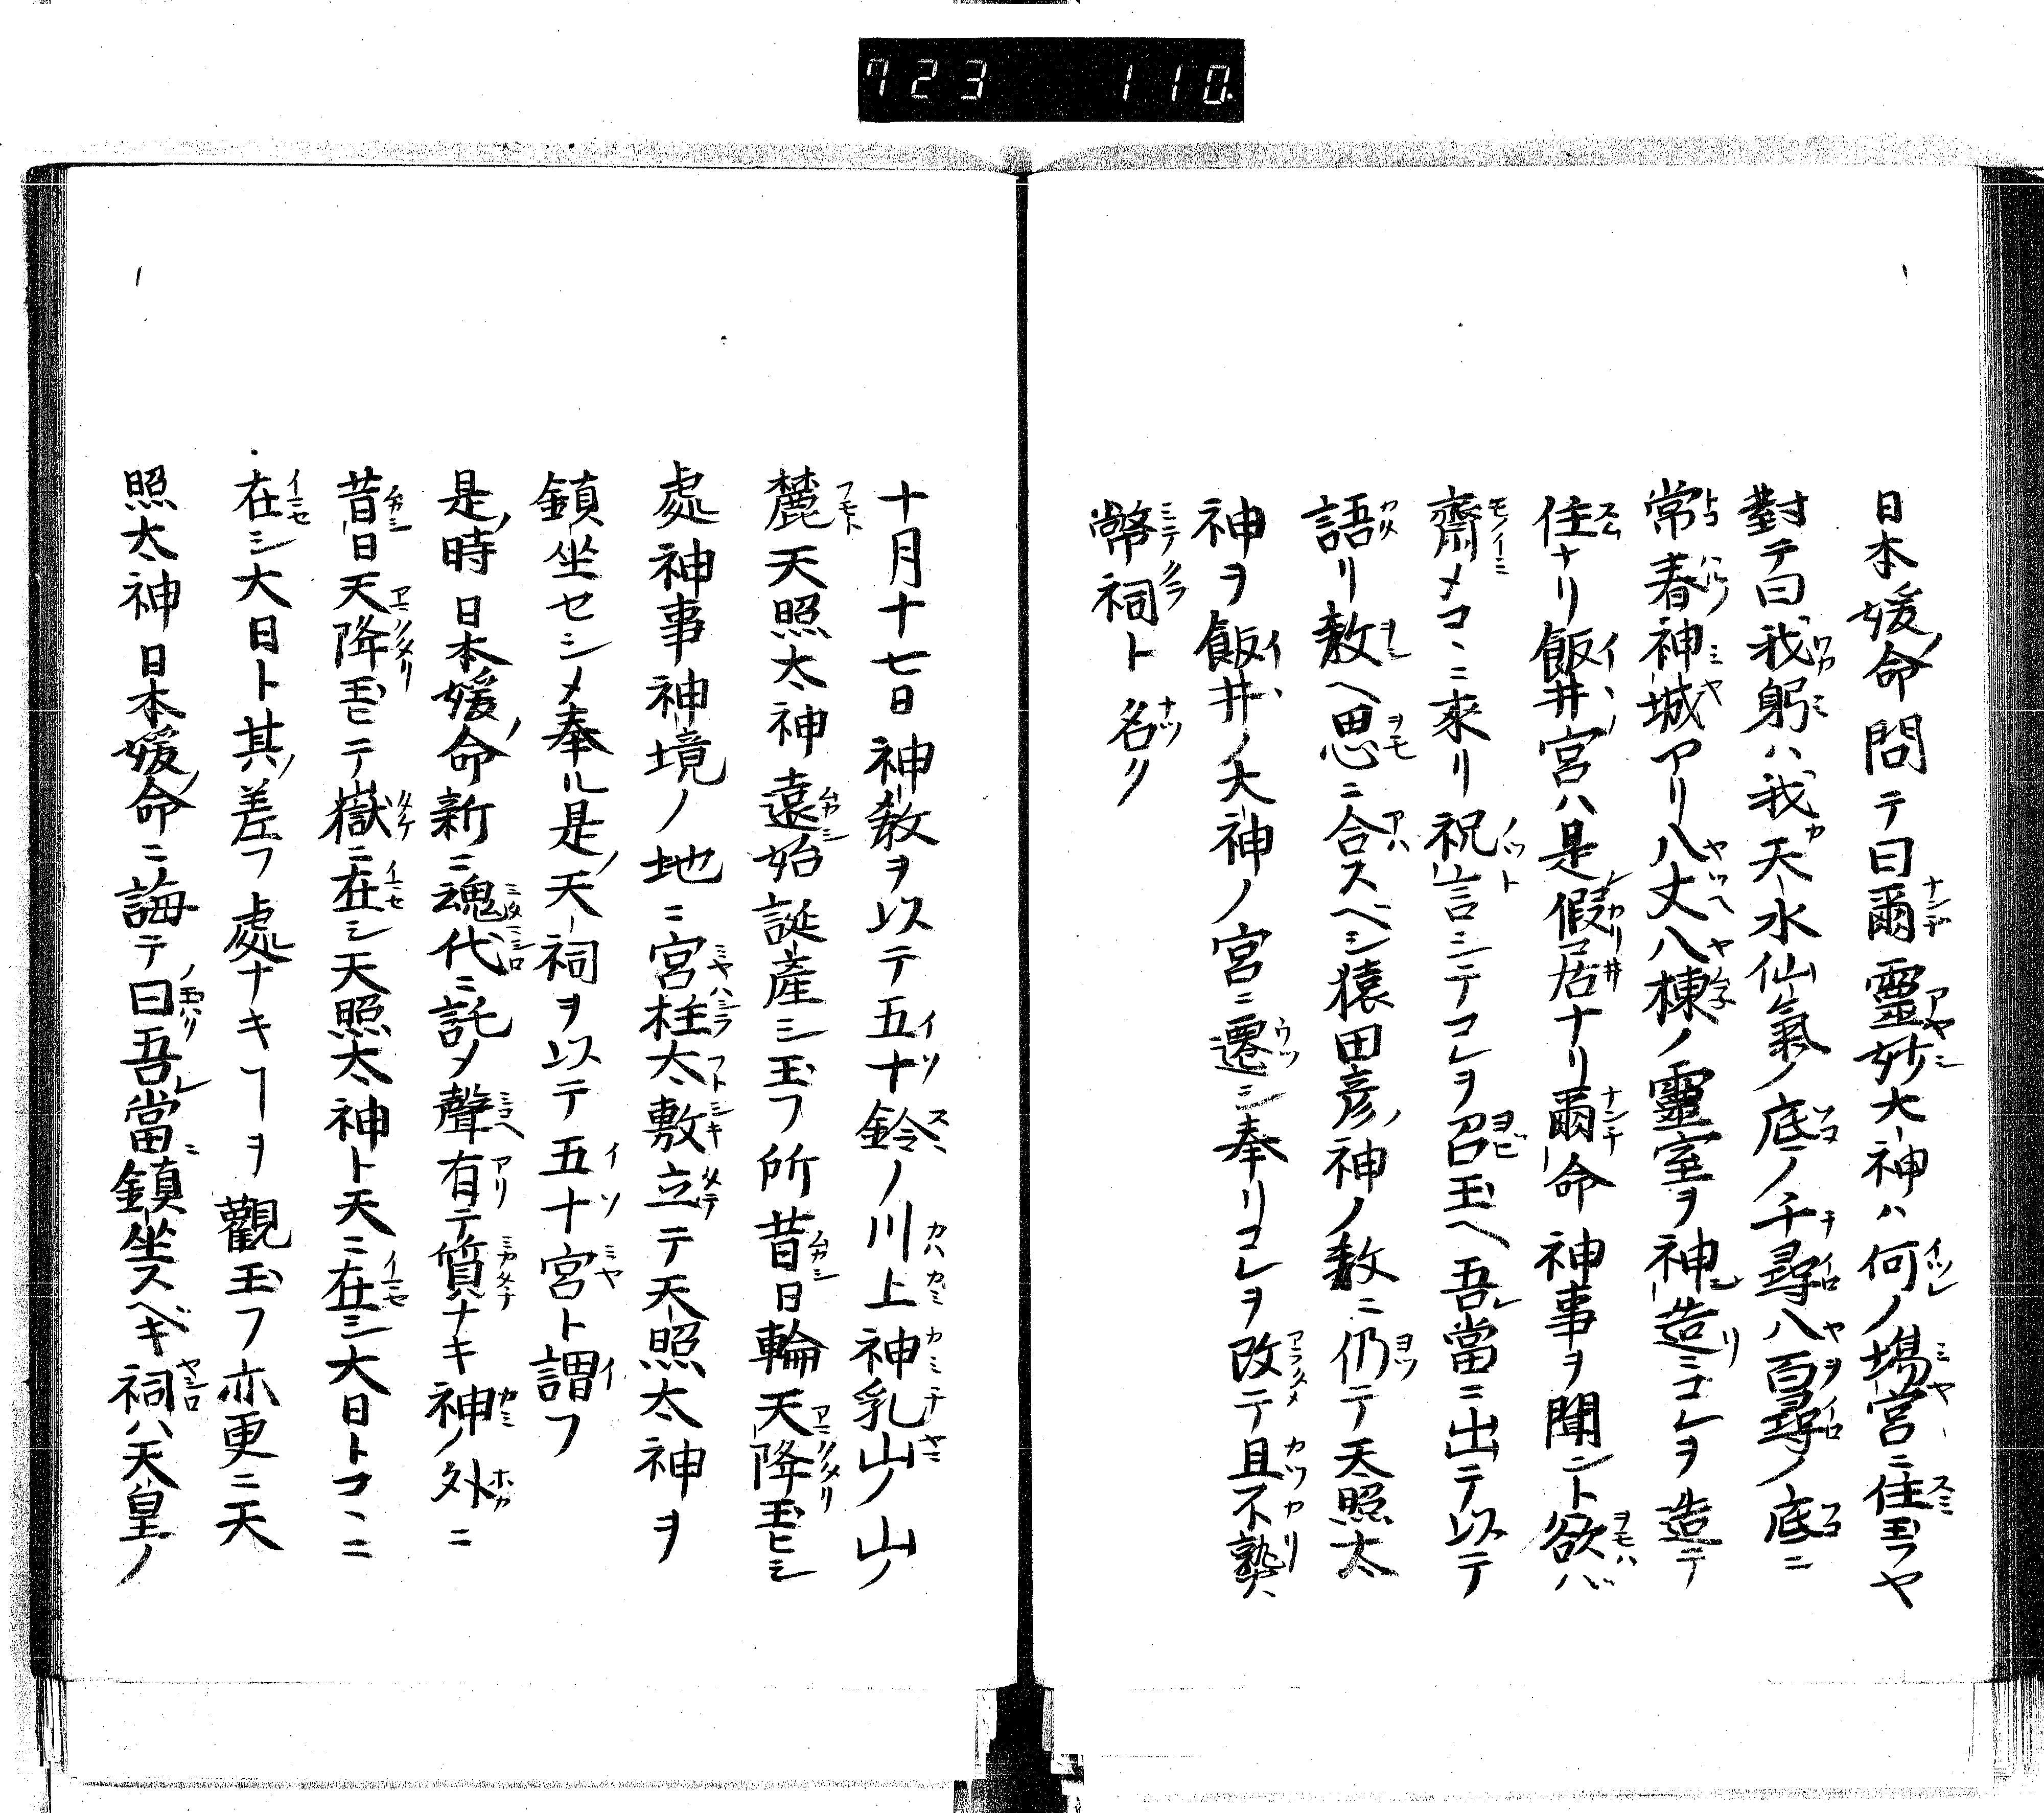 723 110
日本媛ノ命問テ曰爾靈妙大神ハ何ノ場営ニ住玉フヤ
對テ曰我躬ハ我天水仙氣ノ底ノ千尋八百尋ノ底ニ
常春神城アリ八丈八棟ノ靈室ヲ神造ニコレヲ造テ
住ナリ飯井宮ハ是假居ナリ爾命神事ヲ聞ント欲バ
齋メコヽニ來リ祝言シテコレヲ召玉ヘ吾當ニ出テ以テ
語リ敎ヘ思ニ合スベシ猿田彦ノ神ノ敎ニ仍テ天照太
神ヲ飯井ノ大神ノ宮ニ遷シ奉リコレヲ改テ且不埶
幣祠ト名ク
十月十七日神敎ヲ以テ五十鈴ノ川上神乳山ノ山ノ
麓天照太神遠始誕產シ玉フ所昔日輪天降玉ヒシ
處神事神境ノ地ニ宮柱太敷立テ天照太神ヲ
鎮坐セシメ奉ル是ノ天祠ヲ以テ五十宮ト謂フ
是ノ時日本媛ノ命新ニ魂代ニ託メ聲有テ質ナキ神ノ外ニ
昔日天降玉ヒテ嶽ニ在シ天照太神ト天ニ在シ大日トコヽニ
在シ大日ト其ノ差フ處ナキヿヲ觀玉フ亦更ニ天
照太神日本媛ノ命ニ誨テ曰吾當鎮坐スベキ祠ハ天皇ノ